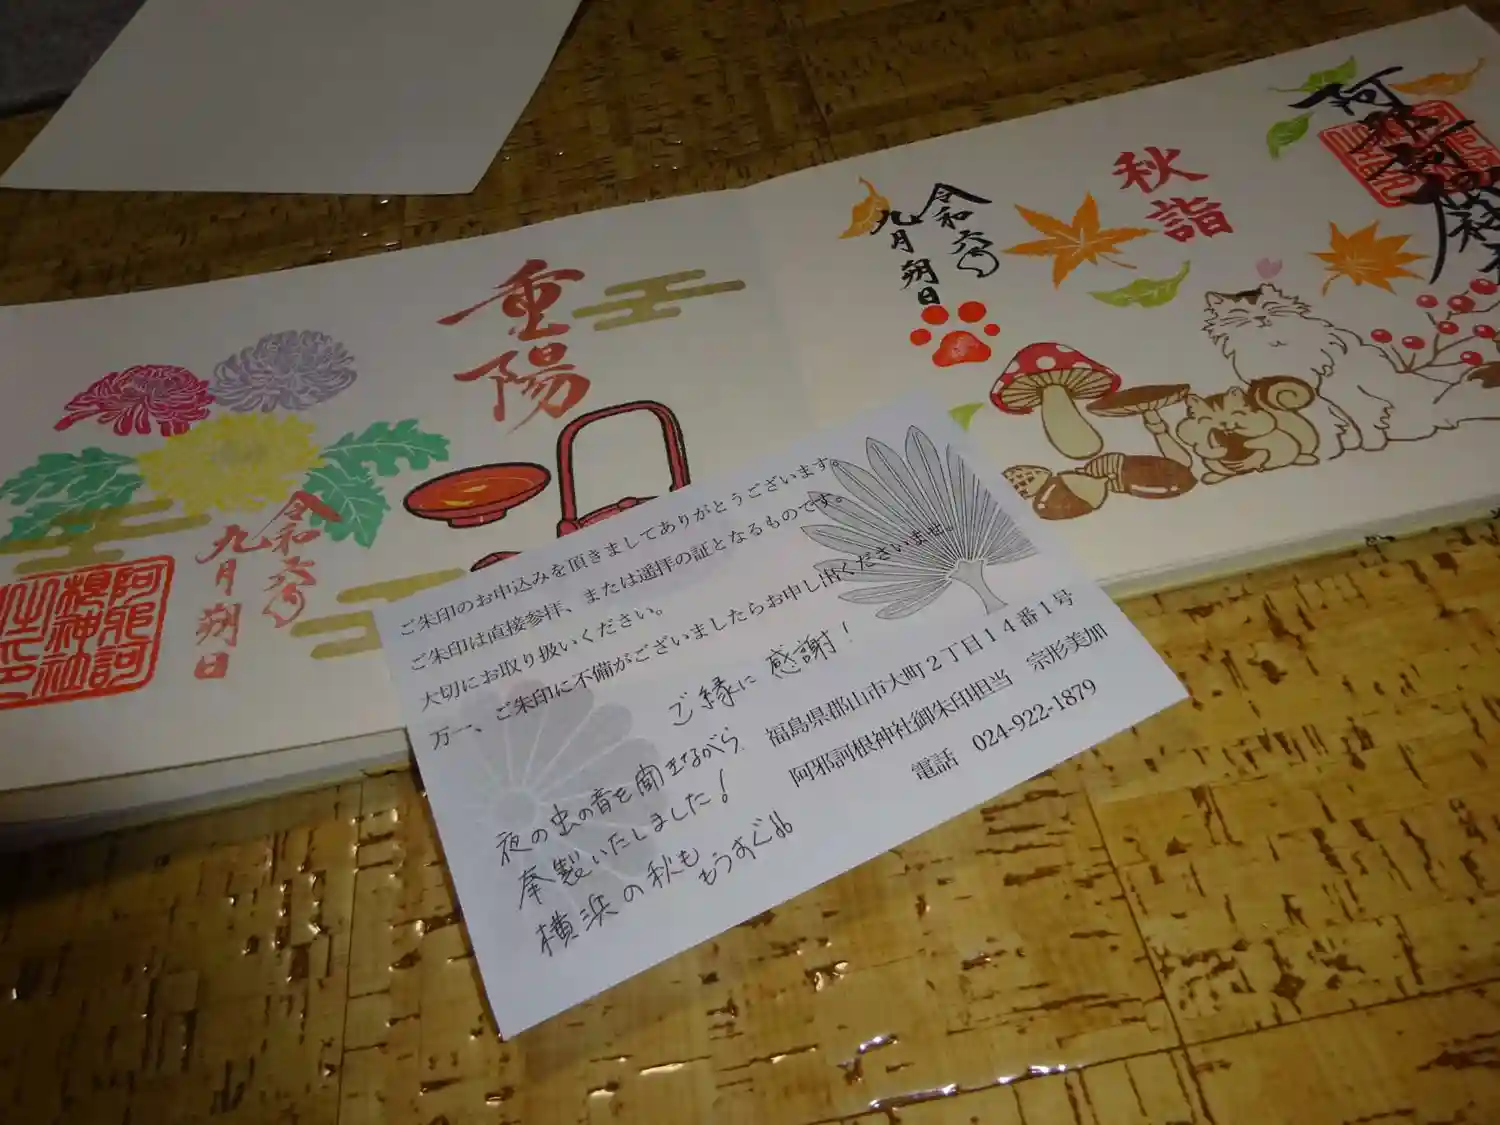 阿邪訶根神社
秋詣
令和六年
九月朔日
重陽
令和六年
九月朔日
阿邪訶
根神社
之印
ご朱印のお申込みを頂きましてありがとうございます。
ご朱印は直接参拝、または遥拝の証となるものです。
大切にお取り扱いください。
万一、ご朱印に不備がございましたらお申し出くださいませ。
ご縁に感謝!
夜の虫の音を聞きながら
奉製いたしました!
横浜の秋も
もうすぐ
福島県郡山市大町2丁目14番1号
阿邪訶根神社御朱印担当 宗形美加
電話 024-922-1879